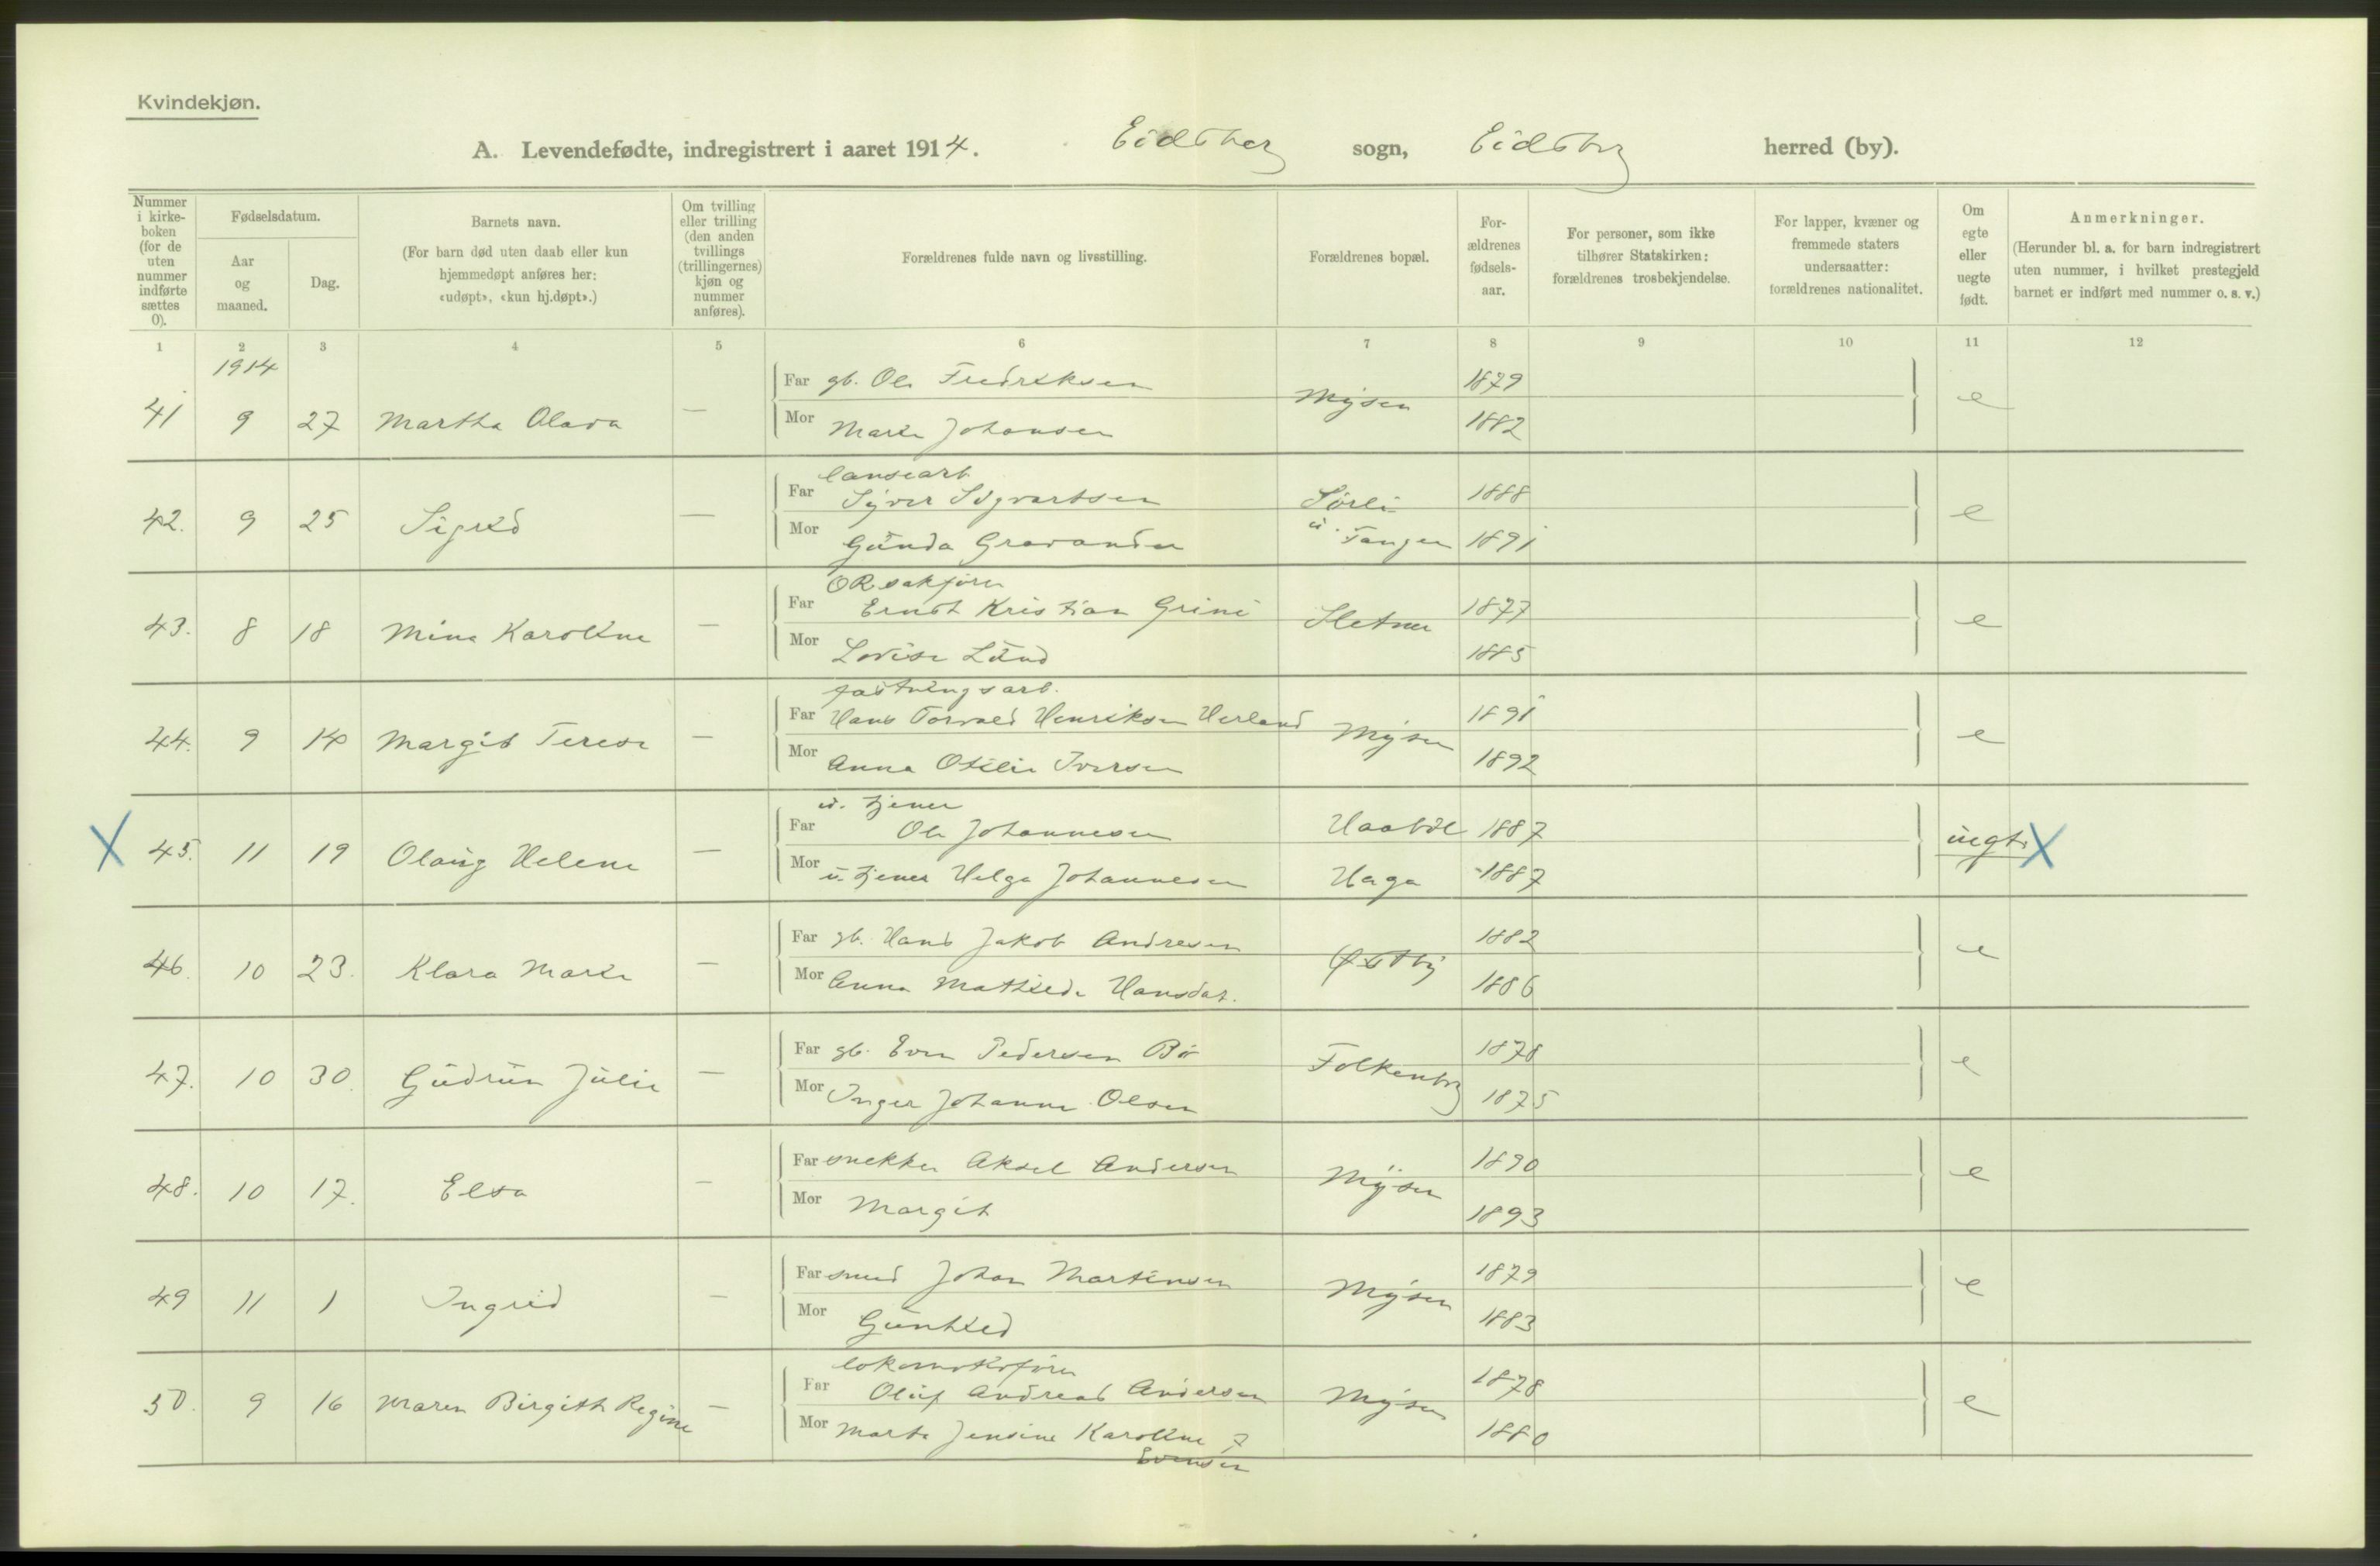 Kvindekjøn.
A. Levendefødte, indregistrert i aaret 1914. Eidsberg sogn, Eidsberg herred (by).
Nummer i kirkeboken (for de uten nummer indførte sættes 0).
Fødselsdatum.
Aar og maaned.
Dag.
Barnets navn.
(For barn død uten daab eller kun hjemmedøpt anføres her: «udøpt», «kun hj.døpt».)
Om tvilling eller trilling (den anden tvillings (trillingernes) kjøn og nummer anføres).
Forældrenes fulde navn og livsstilling.
Forældrenes bopæl.
Forældrenes fødselsaar.
For personer, som ikke tilhører Statskirken: forældrenes trosbekjendelse.
For lapper, kvæner og fremmede staters undersaatter: forældrenes nationalitet.
Om egte eller uegte født.
Anmerkninger.
(Herunder bl. a. for barn indregistrert uten nummer, i hvilket prestegjeld barnet er indført med nummer o. s. v.)
1 2 3 4 5 6 7 8 9 10 11 12
1914
41 9 27 Martha Olava — Far gb. Ole Fredriksen Mysen 1879 e
Mor Marie Johansen 1882
42. 9 25 Sigrid — Far Syver Sigvartsen Sørli 1888 e
Mor Gunda u. Tangen 1891
43. 8 18 Mina Karoline — Far ORsakfører Ernst Kristian Grini Sletner 1877 e
Mor Lovise Lund 1885
44. 9 14 Margit Terese — Far fæstningsarb. Hans Torvald Henriksen Herland Mysen 1891 e
Mor Anna Otilie Iversen 1892
X 45. 11 19 Olaug Helene — Far u. tjener Ole Johannesen Haabøl 1887 uegte X
Mor u. tjener Helga Johannesen Haga 1887
46. 10 23. Klara Marie — Far gb. Hans Jakob Andresen Østby 1882 e
Mor Anna Mathilde Hansdat. 1886
47. 10 30. Gudrun Julie — Far gb. Even Pedersen Bø Folkenborg 1878 e
Mor Inger Johanne Olsen 1875
48. 10 17. Elsa — Far snekker Aksel Andersen Mysen 1890 e
Mor Margit 1893
49 11 1 Ingrid — Far smed Johan Martinsen Mysen 1879 e
Mor Gunhild 1883
50. 9 16 Maren Birgith Regine — Far lokomotivfører Oluf Andreas Andersen Mysen 1878 e
Mor Marte Jensine Karoline f 1880
Evensen